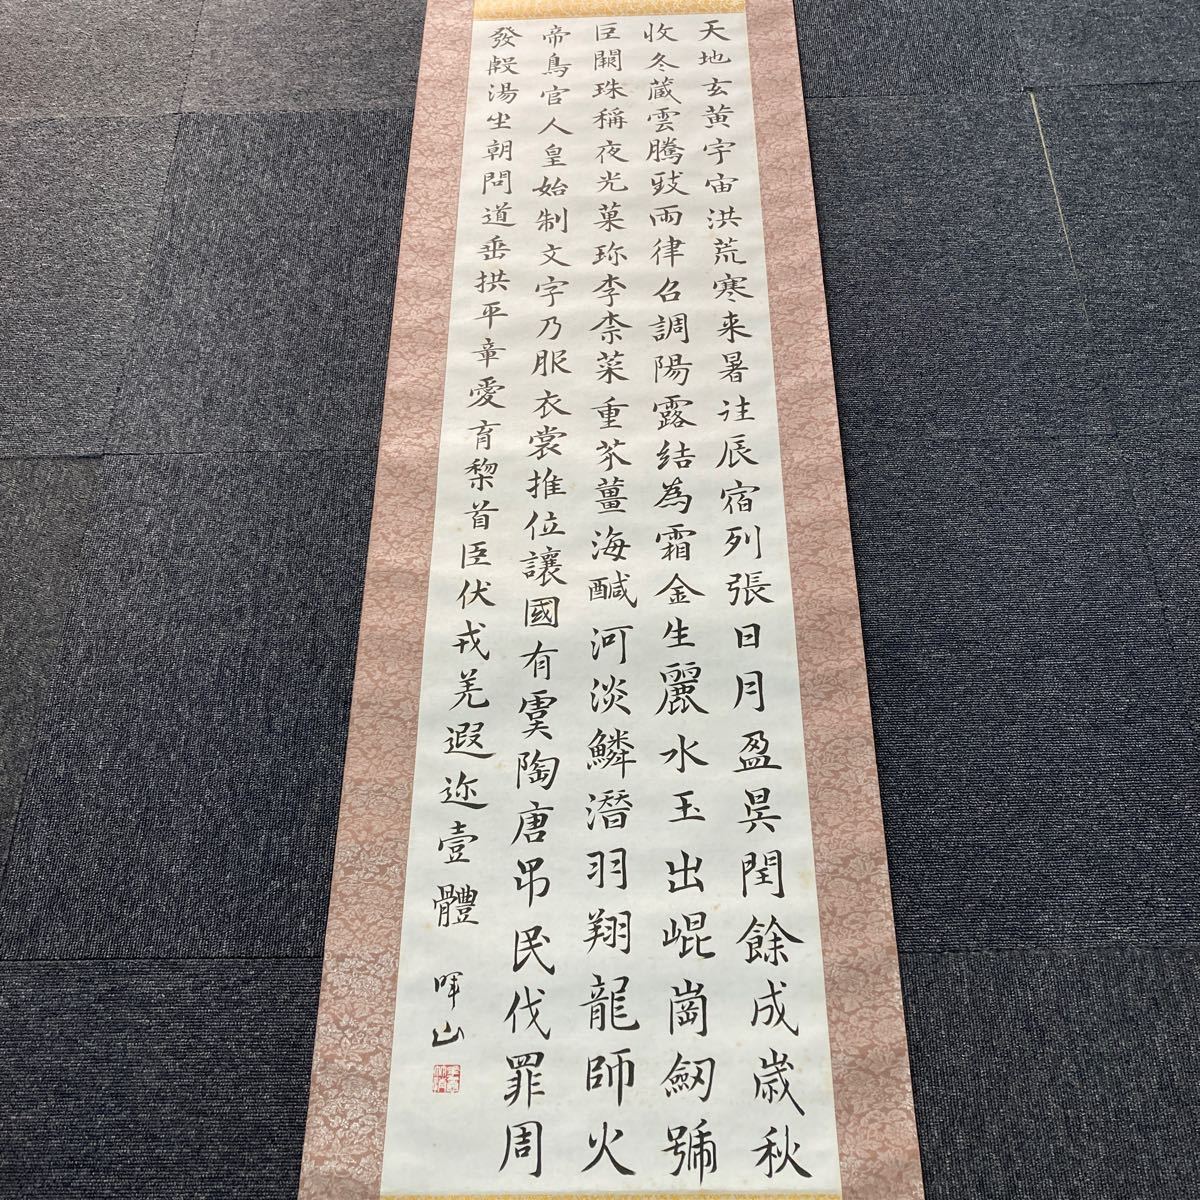 天地玄黄宇宙洪荒寒来暑往辰宿列張日月盈昃閏餘成歳秋
收冬蔵雲騰致雨律召調陽露結為霜金生麗水玉出崐崗劔號
巨闕珠稱夜光菓珎李柰菜重芥薑海鹹河淡鱗潛羽翔龍師火
帝鳥官人皇始制文字乃服衣裳推位讓國有虞陶唐弔民伐罪周
發殷湯坐朝問道垂拱平章愛育黎首臣伏戎羌遐迩壹體
暉山